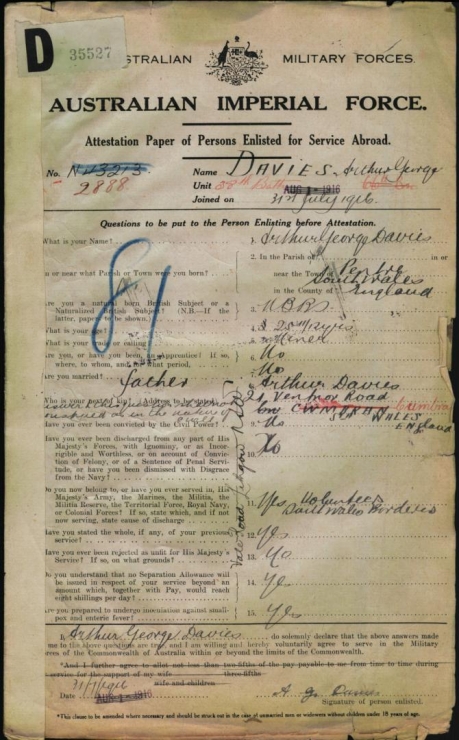 D 35527
AUSTRALIAN MILITARY FORCES.
AUSTRALIAN IMPERIAL FORCE.
Attestation Paper of Persons Enlisted for Service Abroad.
No. N 3213 Name DAVIES, Arthur George
2888. Unit 38th
AUG 1 - 1916
Joined on 31st July 1916.
Questions to be put to the Person Enlisting before Attestation.
What is your Name? 1. Arthur George Davies
2. In the Parish of in or
In or near what Parish or Town were you born? near the Town of Pentre
in the County of South Wales
England
Are you a natural born British Subject or a
Naturalized British Subject? (N.B.—If the
latter, papers to be shown) 3. N.B.B.S
What is your age? 4. 25
What is your trade or calling? 5. Miner
Are you, or have you been, an Apprentice? If so,
where, to whom, and for what period. 6. No
Are you married? 7. No
father 8. Arthur Davies
Who is your next of kin? (Address to be stated) 21 Ventnor Road
CWMBRAN Cumbra
Sth WALES
ENGLAND
Have you ever been convicted by the Civil Power? 9. No
Have you ever been discharged from any part of His
Majesty's Forces, with Ignominy, or as Incor-
rigible and Worthless, or on account of Convic-
tion of Felony, or of a Sentence of Penal Servi-
tude, or have you been dismissed with Disgrace
from the Navy? 10. No
Do you now belong to, or have you ever served in, His
Majesty's Army, the Marines, the Militia, the
Militia Reserve, the Territorial Force, Royal Navy,
or Colonial Forces? If so, state which, and if not
now serving, state cause of discharge 11. Yes, Volunteers
South Wales Borderers
Have you stated the whole, if any, of your previous
service? 12. Yes
Have you ever been rejected as unfit for His Majesty's
Service? If so, on what grounds? 13. No
Do you understand that no Separation Allowance will
be issued in respect of your service beyond an
amount which, together with Pay, would reach
eight shillings per day? 14. Yes
Are you prepared to undergo inoculation against small-
pox and enteric fever? 15. Yes
I, Arthur George Davies do solemnly declare that the above answers made
by me to the above questions are true, and I am willing and hereby voluntarily agree to serve in the Military
Forces of the Commonwealth of Australia within or beyond the limits of the Commonwealth.
*And I further agree to allot not less than two-fifths of the pay payable to me from time to time during
my service for the support of my wife three-fifths
wife and children
31/7/1916
Date AUG 1 - 1916 A. G. Davies
Signature of person enlisted.
*This clause to be amended where necessary and should be struck out in the case of unmarried men or widowers without children under 18 years of age.